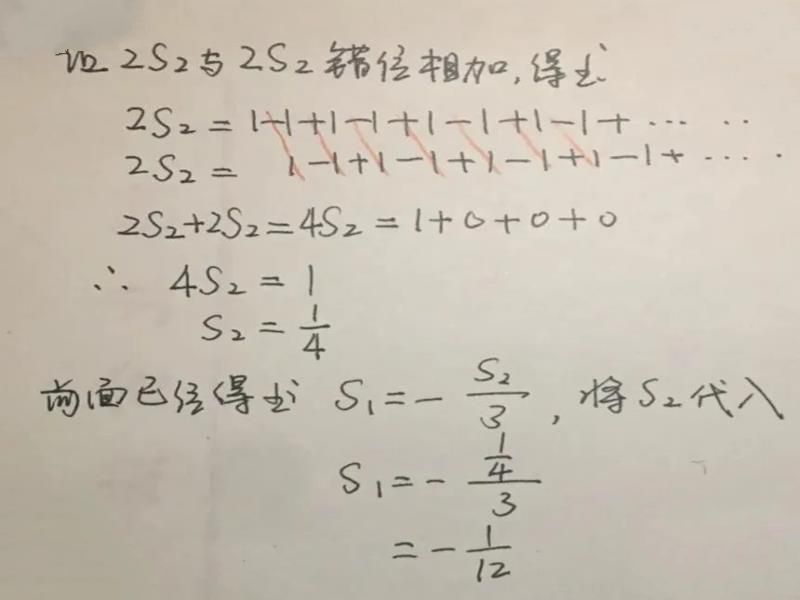 把 2S₂与 2S₂ 错位相加,得出
2S₂ = 1-1+1-1+1-1+1-1+ ··· ··
2S₂ = 1-1+1-1+1-1+1-1+ ··· ·
2S₂+2S₂=4S₂=1+0+0+0
∴ 4S₂ = 1
S₂ = 1/4
前面已经得出 S₁=- S₂/3 , 将S₂代入
S₁=- (1/4)/3
=- 1/12